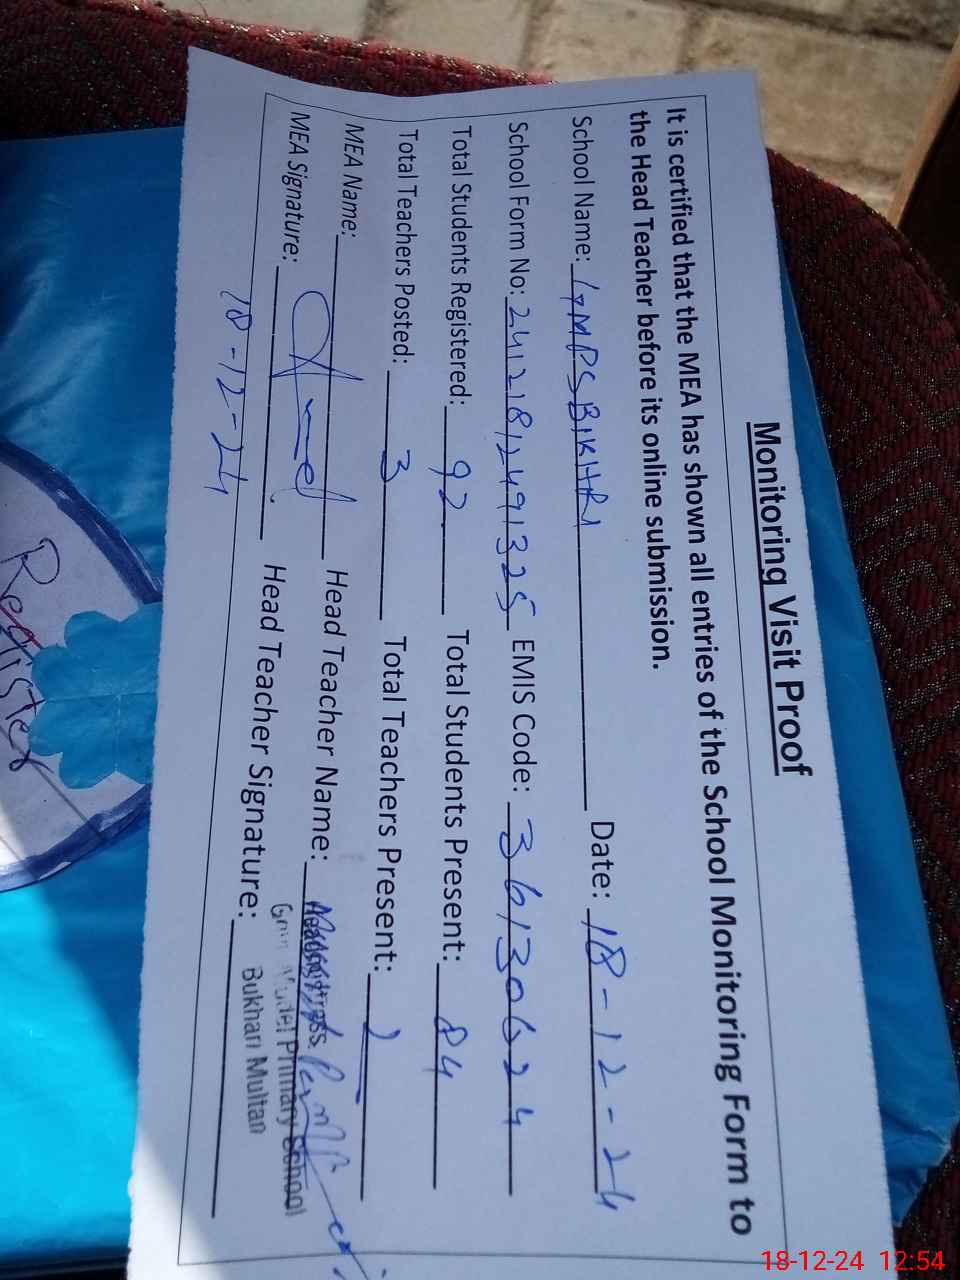 Monitoring Visit Proof
It is certified that the MEA has shown all entries of the School Monitoring Form to
the Head Teacher before its online submission.
School Name: GMPS BUKHARI Date: 18-12-24
School Form No: 24121812491325 EMIS Code: 36130624
Total Students Registered: 92 Total Students Present: 84
Total Teachers Posted: 3 Total Teachers Present: 2
MEA Name: Head Teacher Name: Headmistress
MEA Signature: Head Teacher Signature: Model Primary School
18-12-24 Bukhari Multan
Register
18-12-24 12:54